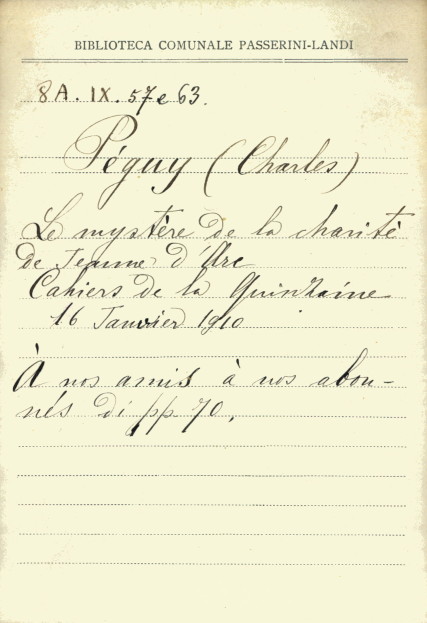 BIBLIOTECA COMUNALE PASSERINI-LANDI
8A. IX. 57 e 63.
Péguy (Charles)
Le mystère de la charité
de Jeanne d'Arc
Cahiers de la Quinzaine
16 Janvier 1910
À nos amis à nos abon-
nés di pp 70.